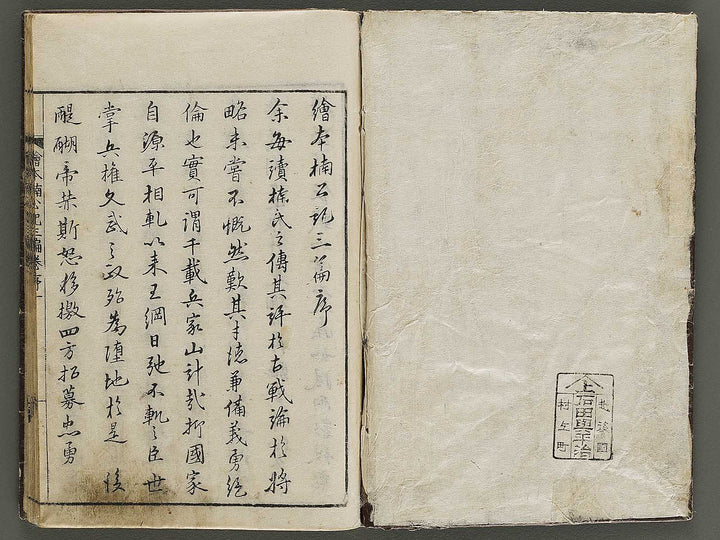 繪本楠公記三篇序
余每讀楠氏之傳其評於古戰論於將
略未嘗不慨然歎其才德兼備義勇絕
倫也實可謂千載兵家 哉抑國家
自源平相軋以来王綱日弛不軌之臣世
掌兵權久武之政殆為墮地於是 後
醍醐帝赫斯怒移檄四方招募忠勇
繪本楠公記三編卷 序一
上
石田與平治
村上町